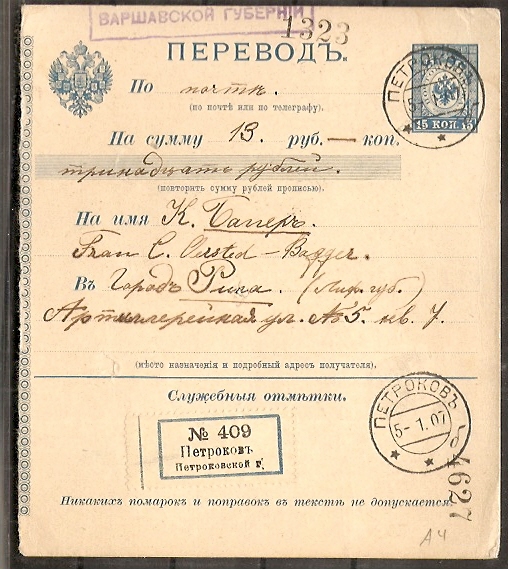 ВАРШАВСКОЙ ГУБЕРНІИ
1323
ПЕРЕВОДЪ.
По почтѣ.
(по почтѣ или по телеграфу).
ПЕТРОКОВЪ
15 КОП. 15
На сумму 13. руб. — коп.
тринадцать рублей.
(повторить сумму рублей прописью).
На имя К. Баггеръ.
Frau C. Oersted-Bagger.
Въ Городъ Рига. (Лиф. губ.)
Артиллерейская ул. № 5. кв. 7.
(мѣсто назначенія и подробный адресъ получателя).
Служебныя отмѣтки.
ПЕТРОКОВЪ
5-1.07
№ 409
Петроковъ
Петроковской г.
4627
Никакихъ помарокъ и поправокъ въ текстѣ не допускается.
АЧ